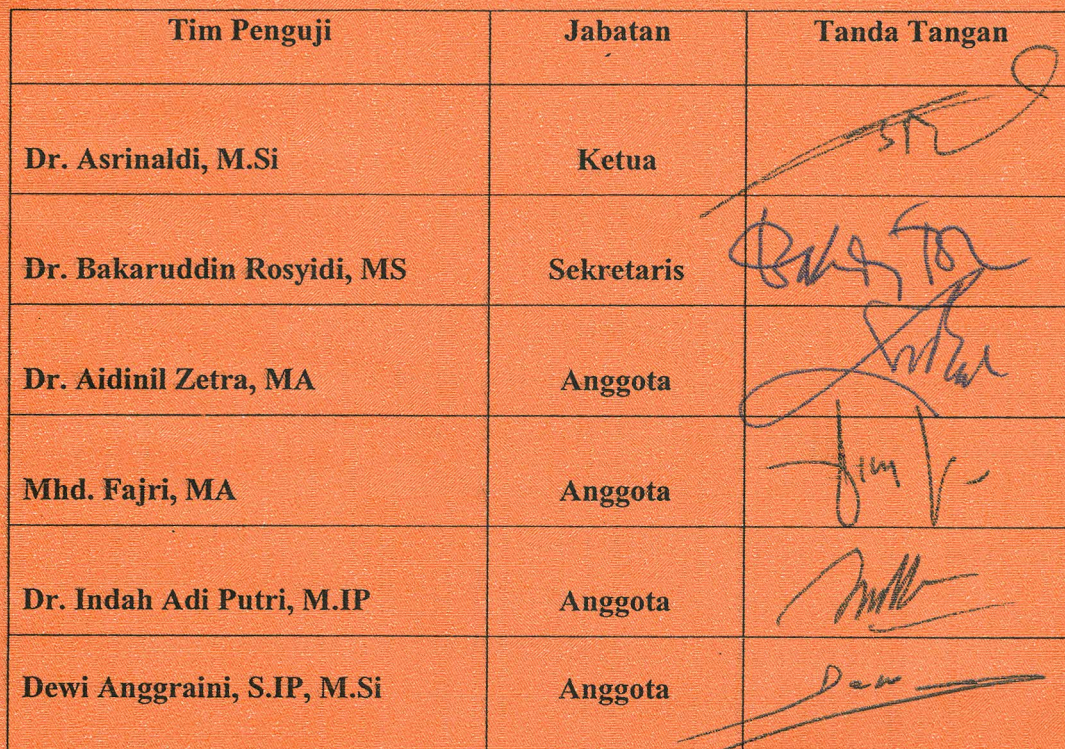 Tim Penguji Jabatan Tanda Tangan
Dr. Asrinaldi, M.Si Ketua
Dr. Bakaruddin Rosyidi, MS Sekretaris
Dr. Aidinil Zetra, MA Anggota
Mhd. Fajri, MA Anggota
Dr. Indah Adi Putri, M.IP Anggota
Dewi Anggraini, S.IP, M.Si Anggota